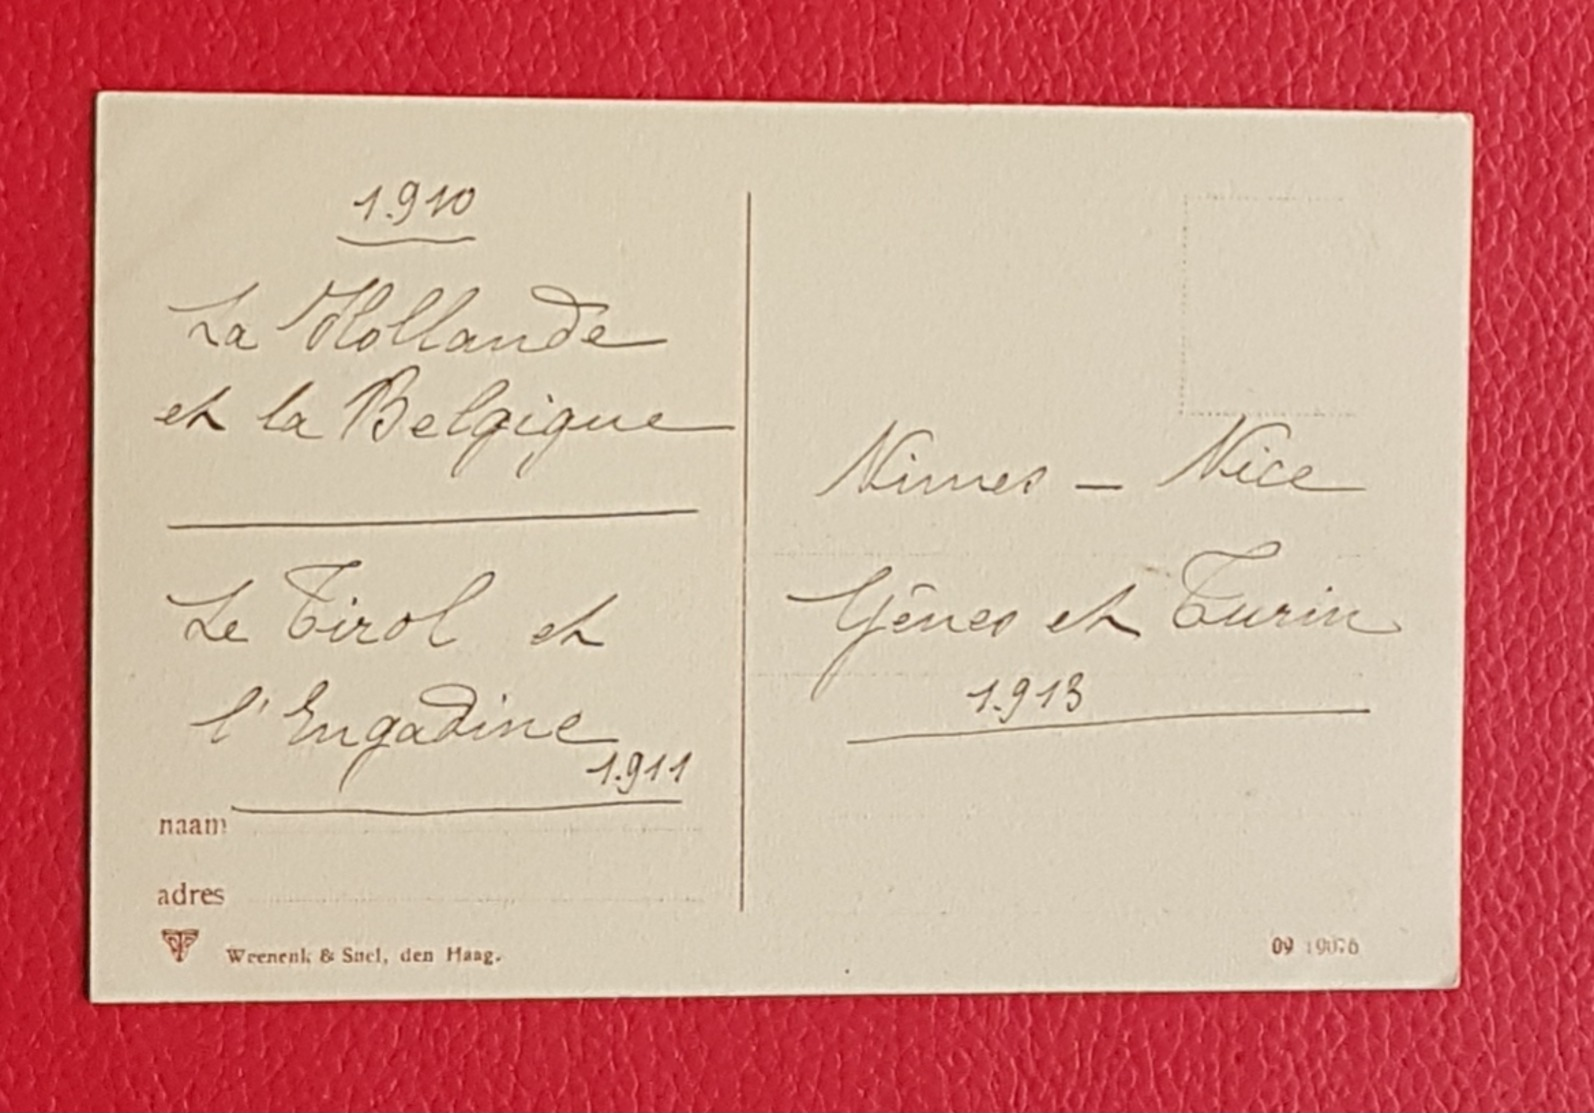 1.910
La Hollande
et la Belgique
Le Tirol et
l'Engadine
1.911
naam
adres
Weenenk & Snel, den Haag.
Nimes – Nice
Gênes et Turin
1.913
09